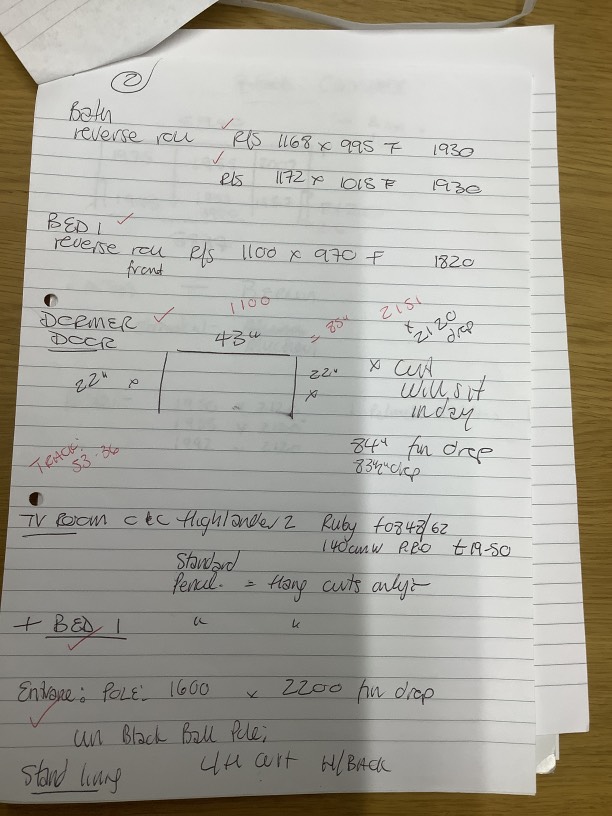 2
Bath
reverse roll R/S 1168 x 995 F 1930
R/S 1172 x 1018 F 1930
BED 1
reverse roll R/S 1100 x 970 F 1820
front
1100 2151
DORMER 43" = 85" + 2120
DOOR drop
22" x 22" x x curt
will sit
in day
84" fin drop
83½" drop
TRACK:
53.36
TV ROOM C&C Highlander 2 Ruby F0848/62
140cmw RRO £19-50
Standard
Pencil. = Hang curts only
+ BED 1 " "
Entrane: POLE: 1600 x 2200 fin drop
un Black Ball Pole;
Stand lining L/H curt H/BACK